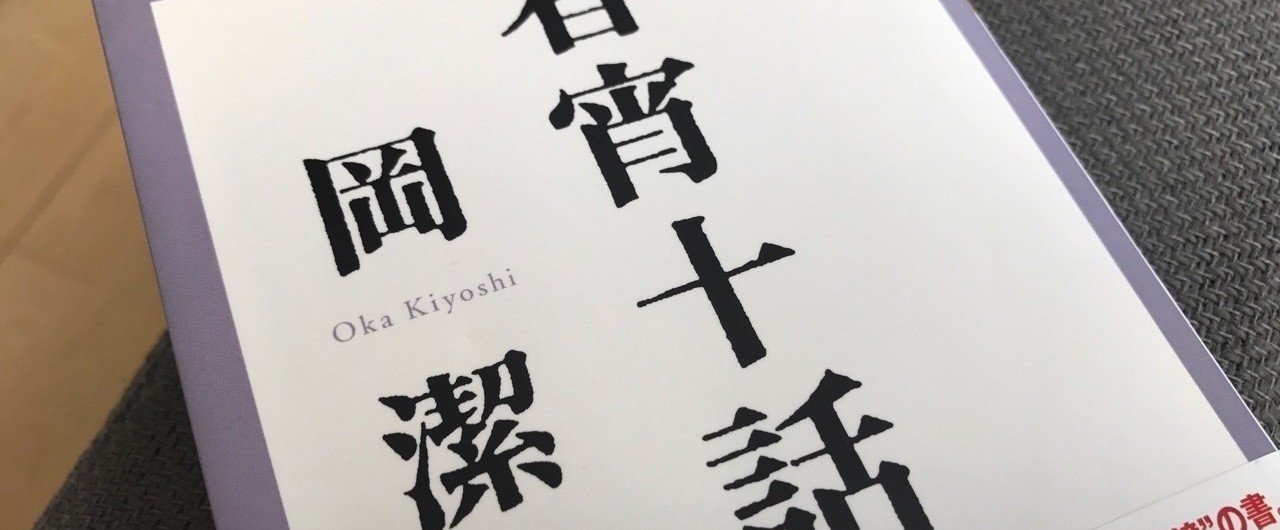 春宵十話
岡潔
Oka Kiyoshi
の書